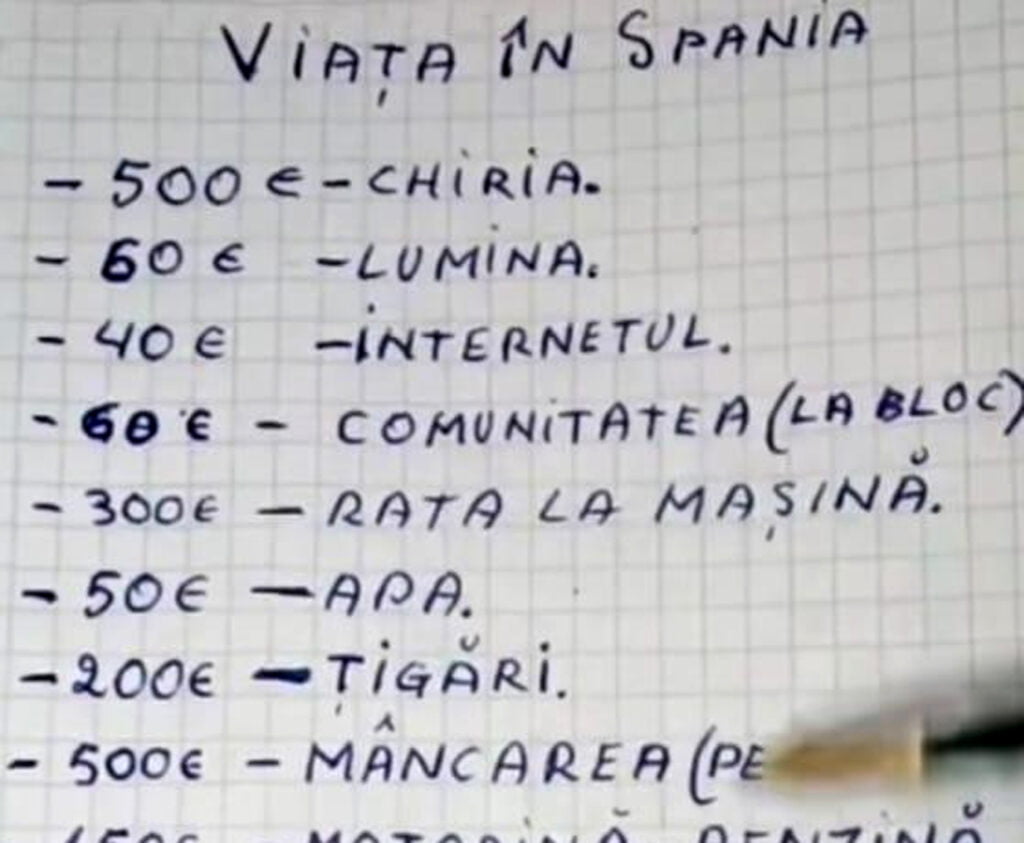 VIAȚA ÎN SPANIA
- 500 € - CHIRIA.
- 60 € - LUMINA.
- 40 € - INTERNETUL.
- 60 € - COMUNITATEA (LA BLOC)
- 300€ - RATA LA MAȘINĂ.
- 50€ - APA.
- 200€ - ȚIGĂRI.
- 500€ - MÂNCAREA (PE
150€ - MOTORINĂ, BENZINĂ